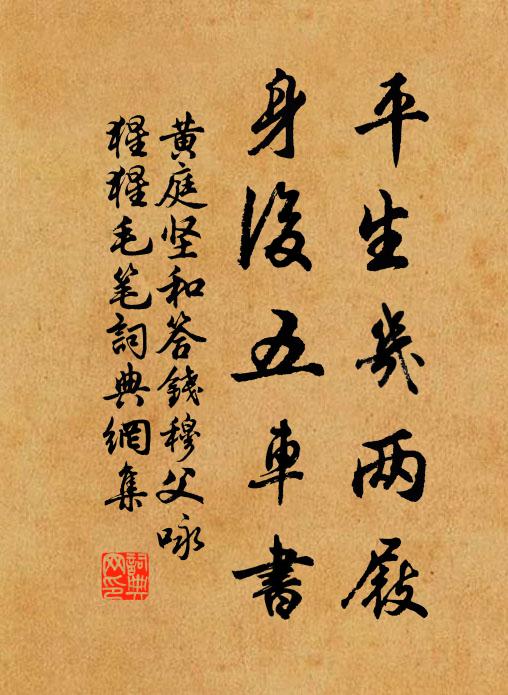 平生幾两屐
身後五車書
黄庭坚和答錢穆父咏
猩猩毛笔詞典網集
詞典网印